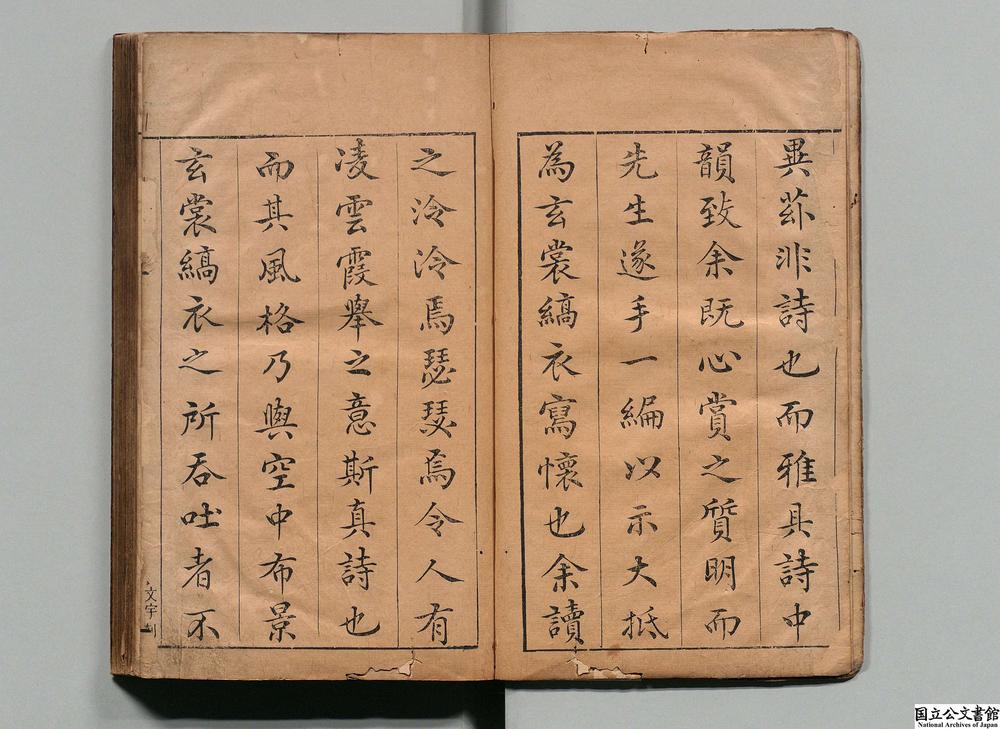 異茲非詩也而雅具詩中
韻致余既心賞之質明而
先生遂手一編以示大抵
為玄裳縞衣寫懷也余讀
之泠泠焉瑟瑟焉令人有
凌雲霞舉之意斯真詩也
而其風格乃與空中布景
玄裳縞衣之所吞吐者不
文宇刊
国立公文書館
National Archives of Japan